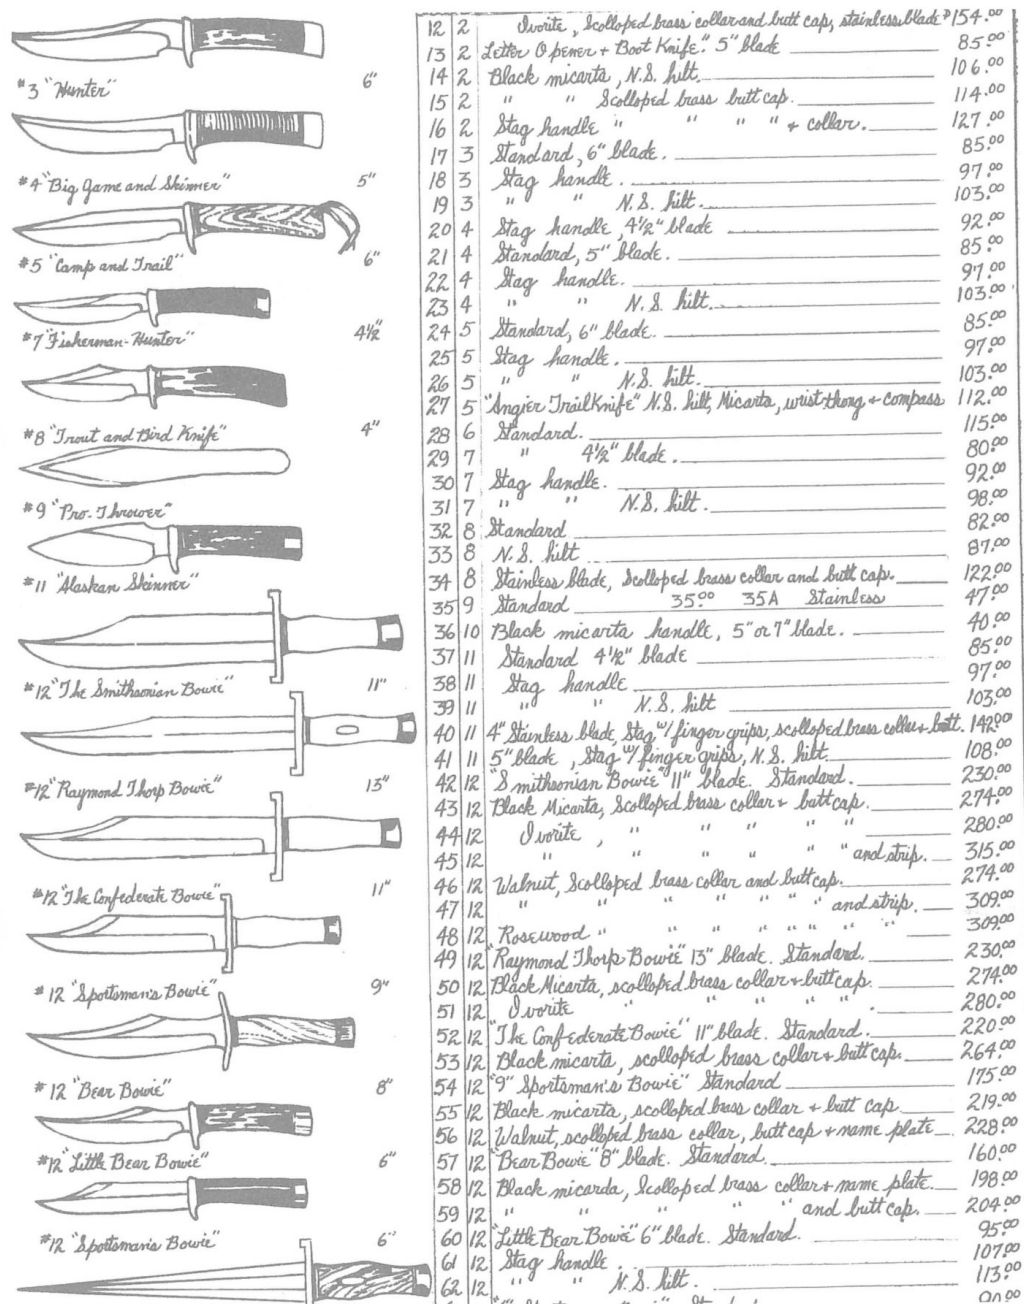 #3 "Hunter" 6"
#4 "Big Game and Skinner" 5"
#5 "Camp and Trail" 6"
#7 "Fisherman-Hunter" 4½"
#8 "Trout and Bird Knife" 4"
#9 "Pro-Thrower"
#11 "Alaskan Skinner"
#12 "The Smithsonian Bowie" 11"
#12 "Raymond Thorp Bowie" 13"
#12 "The Confederate Bowie" 11"
#12 "Sportsman's Bowie" 9"
#12 "Bear Bowie" 8"
#12 "Little Bear Bowie" 6"
#12 "Sportsman's Bowie" 6"
12 2 Ivorite, Scolloped brass collar and butt cap, stainless blade $154.00
13 2 Letter Opener + Boot Knife." 5" blade 85.00
14 2 Black micarta, N.S. hilt. 106.00
15 2 " " Scolloped brass butt cap. 114.00
16 2 Stag handle " " " " + collar. 127.00
17 3 Standard, 6" blade. 85.00
18 3 Stag handle. 97.00
19 3 " " N.S. hilt. 103.00
20 4 Stag handle, 4½" blade 92.00
21 4 Standard, 5" blade. 85.00
22 4 Stag handle. 97.00
23 4 " " N.S. hilt. 103.00
24 5 Standard, 6" blade. 85.00
25 5 Stag handle. 97.00
26 5 " " N.S. hilt. 103.00
27 5 "Angier Trail Knife" N.S. hilt, Micarta, wrist thong + compass 112.00
28 6 Standard. 115.00
29 7 " 4½" blade. 80.00
30 7 Stag handle. 92.00
31 7 " " N.S. hilt. 98.00
32 8 Standard 82.00
33 8 N.S. hilt 87.00
34 8 Stainless blade, Scolloped brass collar and butt cap. 122.00
35 9 Standard 35.00 35A Stainless 47.00
36 10 Black micarta handle, 5" or 7" blade. 40.00
37 11 Standard 4½" blade 85.00
38 11 Stag handle 97.00
39 11 " " N.S. hilt 103.00
40 11 4" Stainless blade, Stag w/ finger grips, scolloped brass collar + butt. 142.00
41 11 5" blade, Stag w/ finger grips, N.S. hilt. 108.00
42 12 "Smithsonian Bowie" 11" blade. Standard. 230.00
43 12 Black Micarta, Scolloped brass collar + butt cap. 274.00
44 12 Ivorite, " " " " " 280.00
45 12 " " " " " " and strip. 315.00
46 12 Walnut, Scolloped brass collar and butt cap. 274.00
47 12 " " " " " " and strip. 309.00
48 12 Rosewood " " " " " " " " 309.00
49 12 "Raymond Thorp Bowie" 13" blade. Standard. 230.00
50 12 Black Micarta, scolloped brass collar + butt cap. 274.00
51 12 Ivorite " " " " " 280.00
52 12 "The Confederate Bowie" 11" blade. Standard. 220.00
53 12 Black micarta, scolloped brass collar + butt cap. 264.00
54 12 "9" Sportsman's Bowie" Standard 175.00
55 12 Black micarta, scolloped brass collar + butt cap 219.00
56 12 Walnut, scolloped brass collar, butt cap + name plate 228.00
57 12 "Bear Bowie" 8" blade. Standard. 160.00
58 12 Black micarda, Scolloped brass collar + name plate. 198.00
59 12 " " " " " " and butt cap. 204.00
60 12 "Little Bear Bowie" 6" blade. Standard. 95.00
61 12 Stag handle. 107.00
62 12 " " N.S. hilt. 113.00